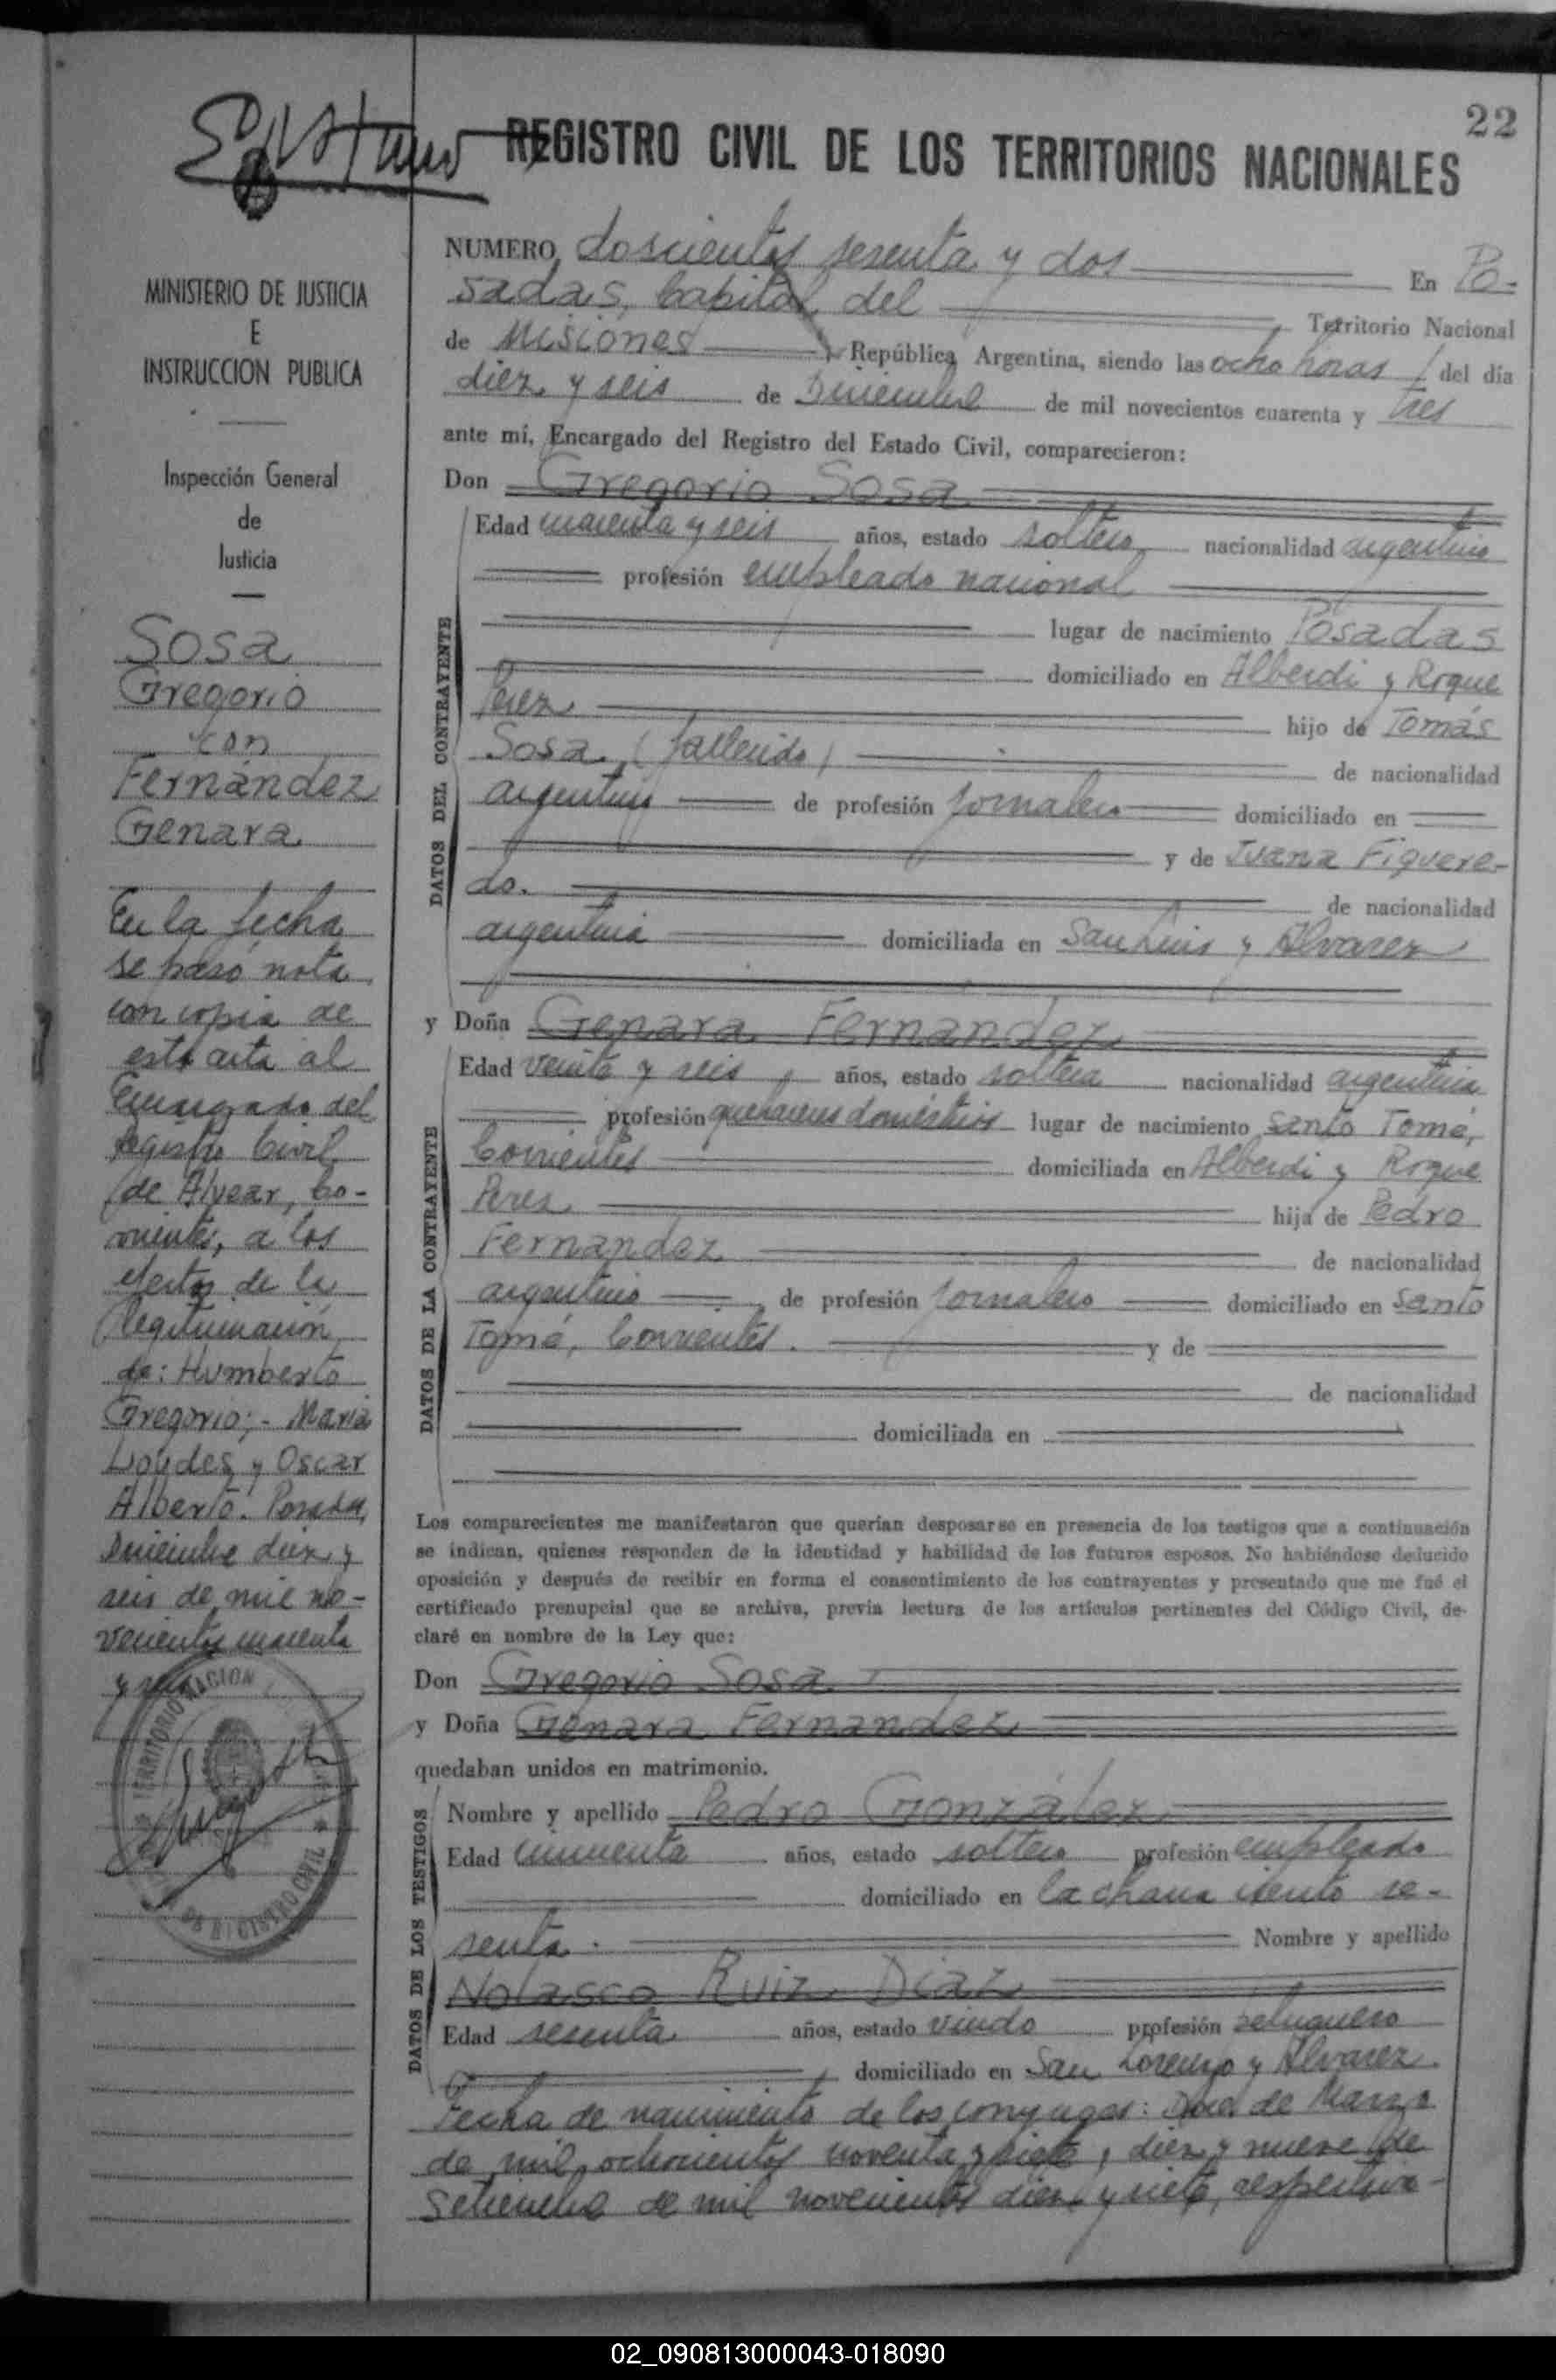 22
REGISTRO CIVIL DE LOS TERRITORIOS NACIONALES
MINISTERIO DE JUSTICIA
E
INSTRUCCION PUBLICA
Inspección General
de
Justicia
Sosa
Gregorio
con
Fernández
Genara
En la fecha
se pasó nota
con copia de
esta acta al
Encargado del
Registro Civil
de Alvear, Co-
rrientes, a los
efectos de la
legitimación
de: Humberto
Gregorio;- María
Lourdes y Oscar
Alberto. Posadas,
Diciembre diez y
seis de mil no-
vecientos cuarenta
y
NUMERO doscientos sesenta y dos En Po-
sadas, Capital del Territorio Nacional
de Misiones, República Argentina, siendo las ocho horas del día
diez y seis de Diciembre de mil novecientos cuarenta y tres
ante mí, Encargado del Registro del Estado Civil, comparecieron:
Don Gregorio Sosa
DATOS DEL CONTRAYENTE
Edad cuarenta y seis años, estado soltero nacionalidad argentino
profesión empleado nacional
lugar de nacimiento Posadas
domiciliado en Alberdi y Roque
Perez hijo de Tomás
Sosa, (fallecido) de nacionalidad
argentino de profesión jornalero domiciliado en
y de Juana Figuere-
do. de nacionalidad
argentina domiciliada en San Luis y Alvarez
y Doña Genara Fernandez
DATOS DE LA CONTRAYENTE
Edad veinte y seis años, estado soltera nacionalidad argentina
profesión quehaceres domésticos lugar de nacimiento Santo Tomé,
Corrientes domiciliada en Alberdi y Roque
Perez hija de Pedro
Fernandez de nacionalidad
argentino de profesión jornalero domiciliado en Santo
Tomé, Corrientes. y de
de nacionalidad
domiciliada en
Los comparecientes me manifestaron que querían desposarse en presencia de los testigos que a continuación
se indican, quienes responden de la identidad y habilidad de los futuros esposos. No habiéndose deducido
oposición y después de recibir en forma el consentimiento de los contrayentes y presentado que me fué el
certificado prenupcial que se archiva, previa lectura de los artículos pertinentes del Código Civil, de-
claré en nombre de la Ley que:
Don Gregorio Sosa
y Doña Genara Fernandez
quedaban unidos en matrimonio.
DATOS DE LOS TESTIGOS
Nombre y apellido Pedro González
Edad cincuenta años, estado soltero profesión empleado
domiciliado en la chacra ciento se-
senta. Nombre y apellido
Nolasco Ruiz Diaz
Edad sesenta años, estado viudo profesión peluquero
domiciliado en San Lorenzo y Alvarez.
Fecha de nacimiento de los conyuges: Doce de Marzo
de mil ochocientos noventa y siete, diez y nueve de
Setiembre de mil novecientos diez y siete, respectiva-
REGISTRO CIVIL
02_090813000043-018090